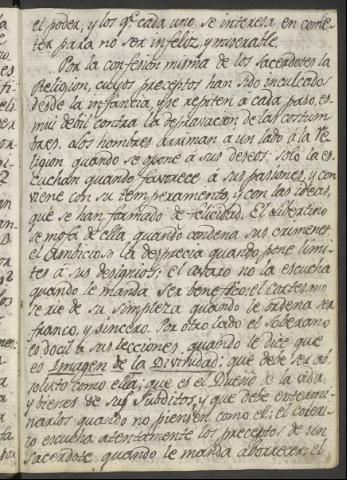 el poder, y los qᵉ cada uno se interesa en come-
ter para no ser infeliz, y miserable.
Por la confesion misma de los sacerdotes la
Religion, cuyos preceptos han sido inculcados
desde la infancia, y se repiten á cada paso, es
mui debil contra la depravacion de las costum
bres. Los hombres arriman á un lado á la re
ligion quando se opone á sus deseos; solo la es
cuchan quando favorece á sus pasiones, y con
viene con su temperamento, y con las ideas,
que se han formado de felicidad. El libertino
se mofa de ella quando condena sus crimenes;
el ambicioso la desprecia quando pone limi-
tes á sus designios; el avaro no la escucha
quando le manda ser benefico; el cortesano
se rie de su simpleza quando le ordena ser
franco, y sincero. Por otro lado el soberano
es docil á sus lecciones, quando le dice que
es Imagen de la Divinidad; que debe ser ab
soluto como ella; que es el Dueño de la vida,
y bienes de sus subditos, y que debe extermi-
narlos quando no piensen como él; el
escucha atentamente los preceptos de un
sacerdote quando le manda aborrecer; el